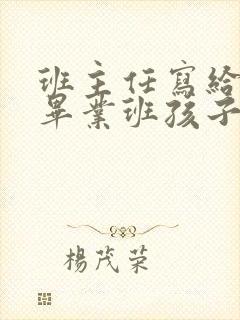 班主任寫給
畢業班孩子
楊茂荣